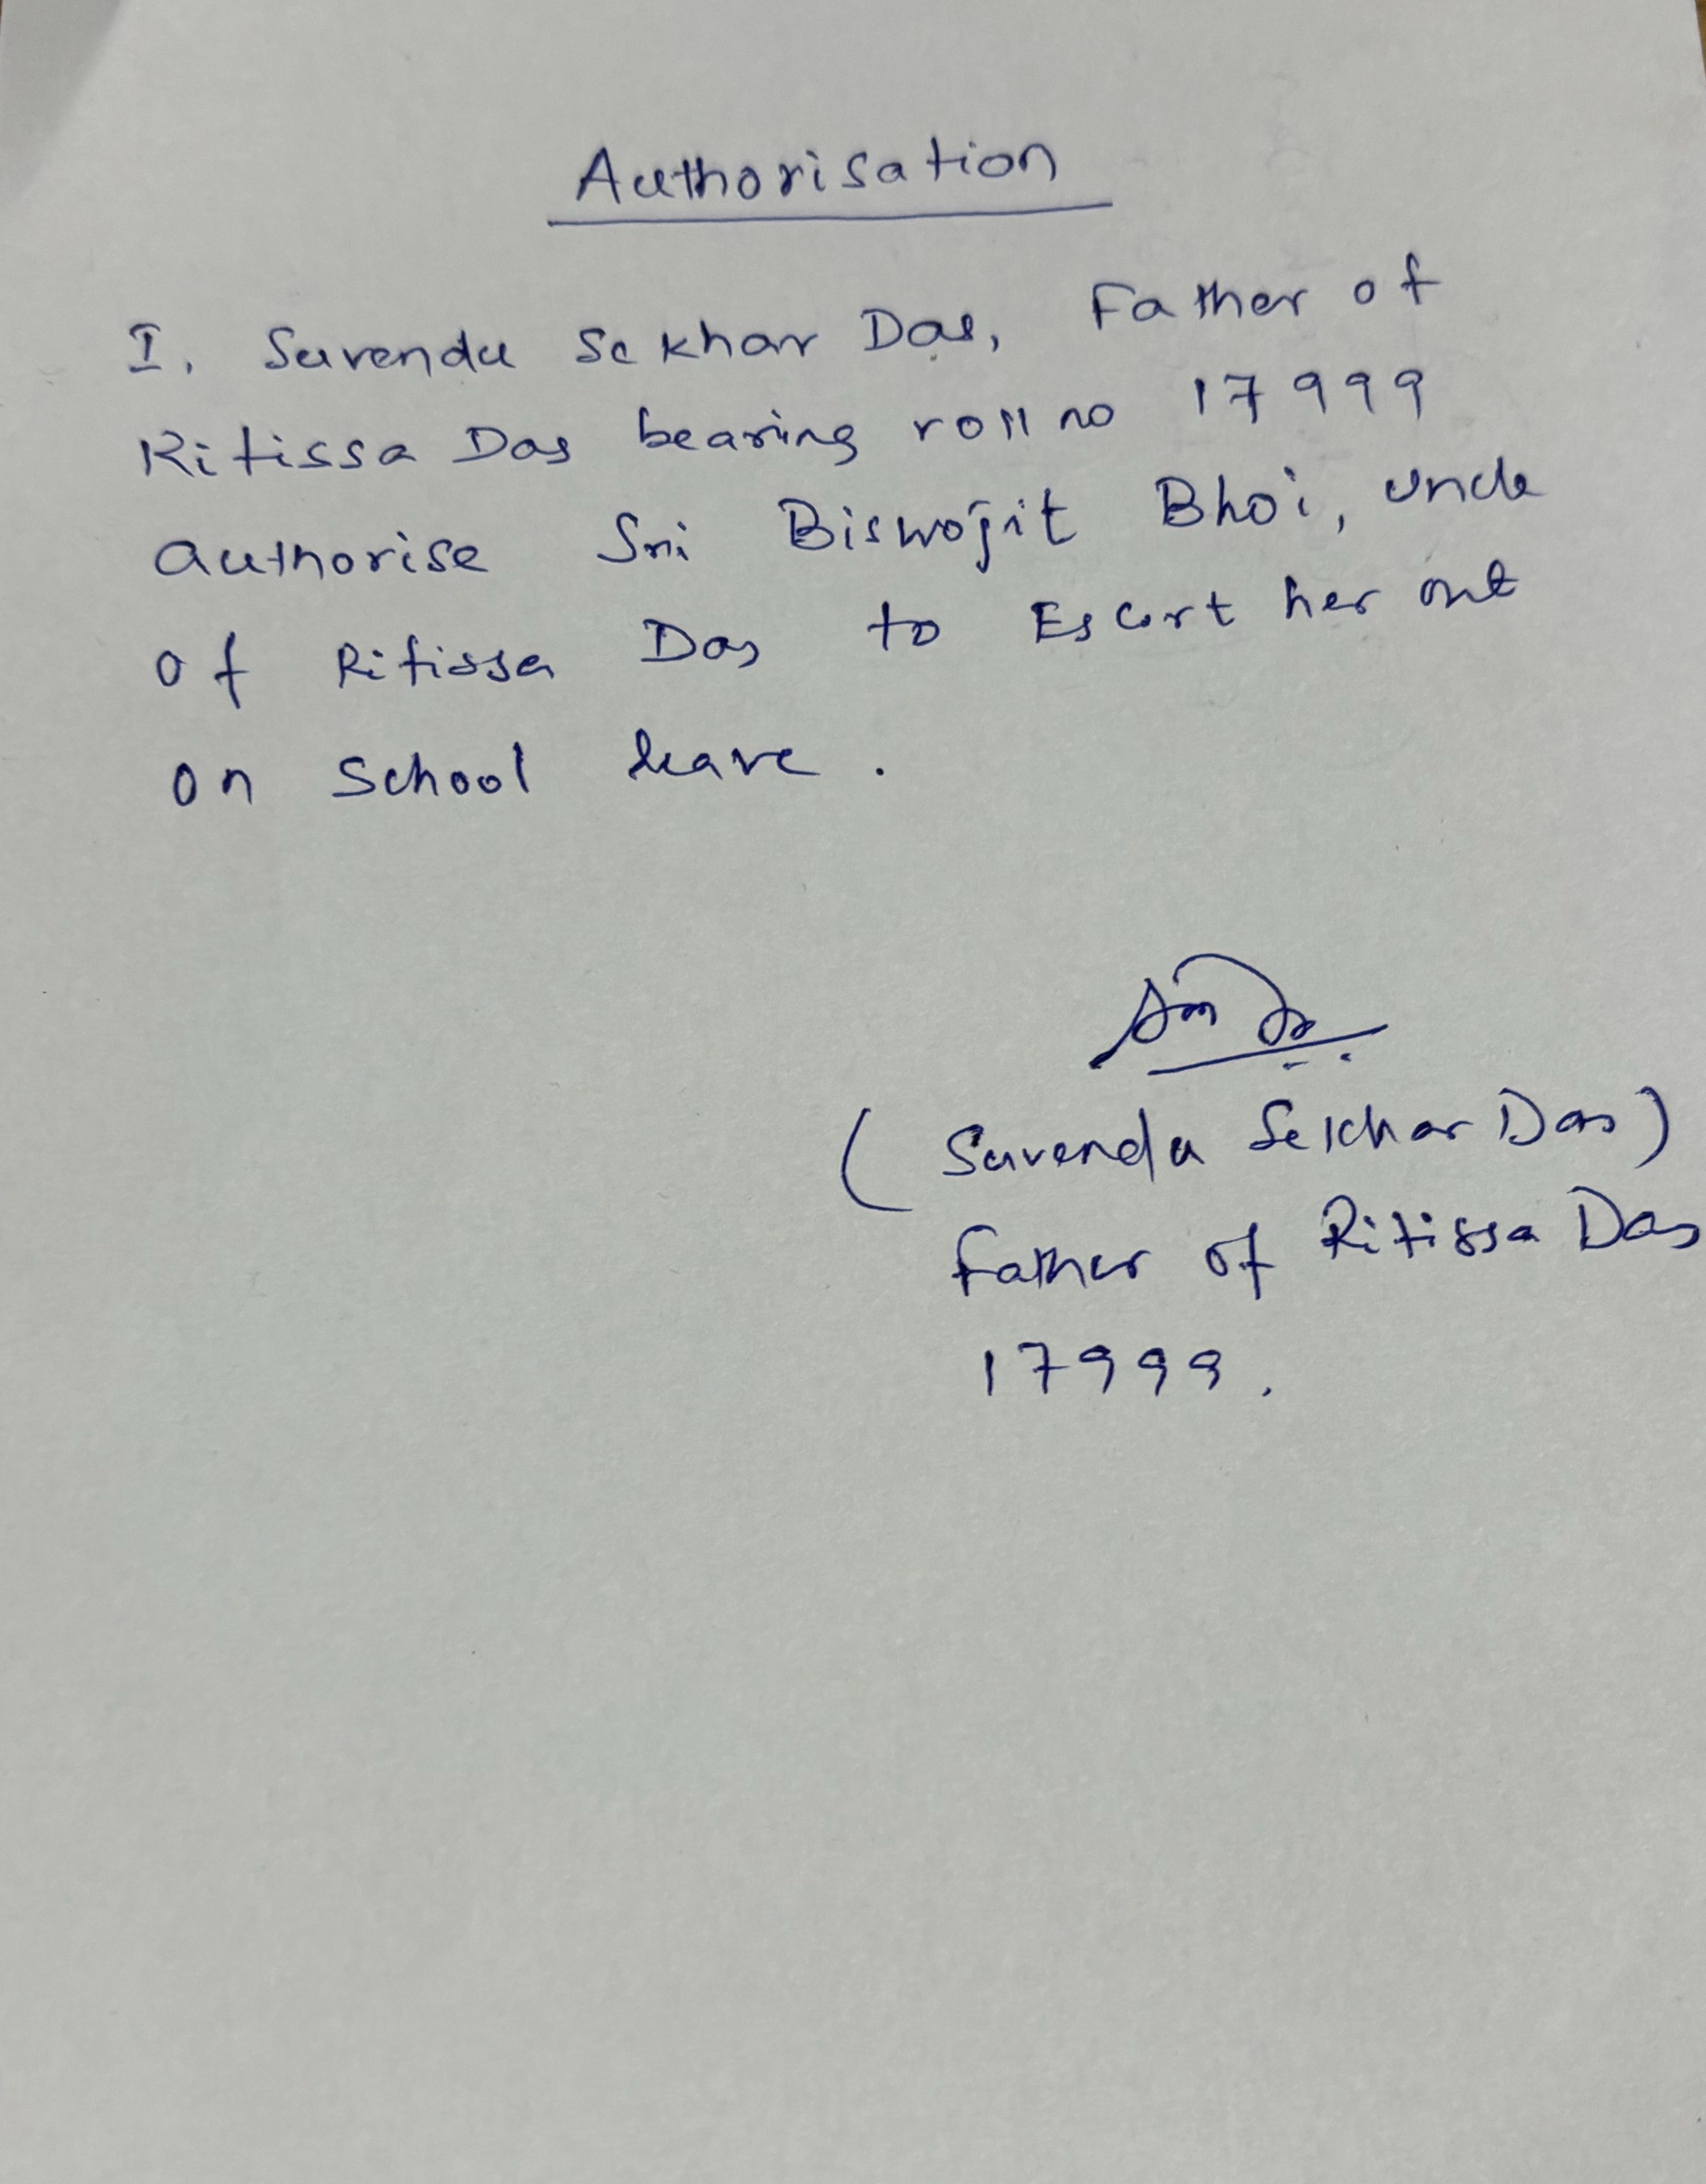 Authorisation
I, Suvendu Sekhar Das, Father of
Ritissa Das bearing roll no 17999
authorise Sri Biswojit Bhoi, uncle
of Ritissa Das to Escort her out
on School leave.
(Suvendu Sekhar Das)
Father of Ritissa Das
17999.